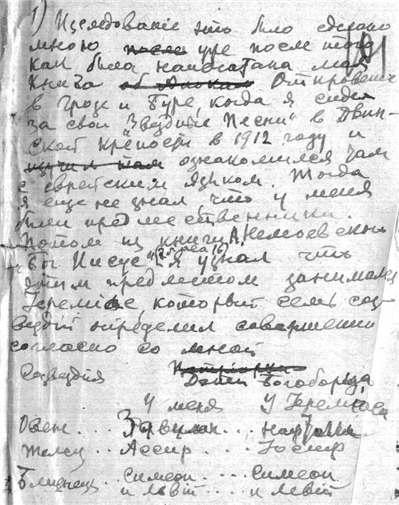 1) Изследованiе это было сделано
мною после уже после того
как была напечатана моя
книга Откровенiе
в Грозе и Буре, когда я сидел
за свои "Звездные Песни" в Двин-
ской крепости в 1912 году и
изучил там ознакомился там
с еврейским языком. Тогда
я еще не зная что у меня
были предшественники.
Потом из книги А. Немоевского
"Бог Иисус" я узнал что
этим предметом занимался
Иеремiас который семь соз-
вездiй определил совершенно
согласно со мной
Созвездия
Дети Богоборца
У меня У Иеремiаса
Овен... Завулон... нафтали
Телец... Ассир... Iосиф
Близнецы симеон... симеон
и левiй и левiй